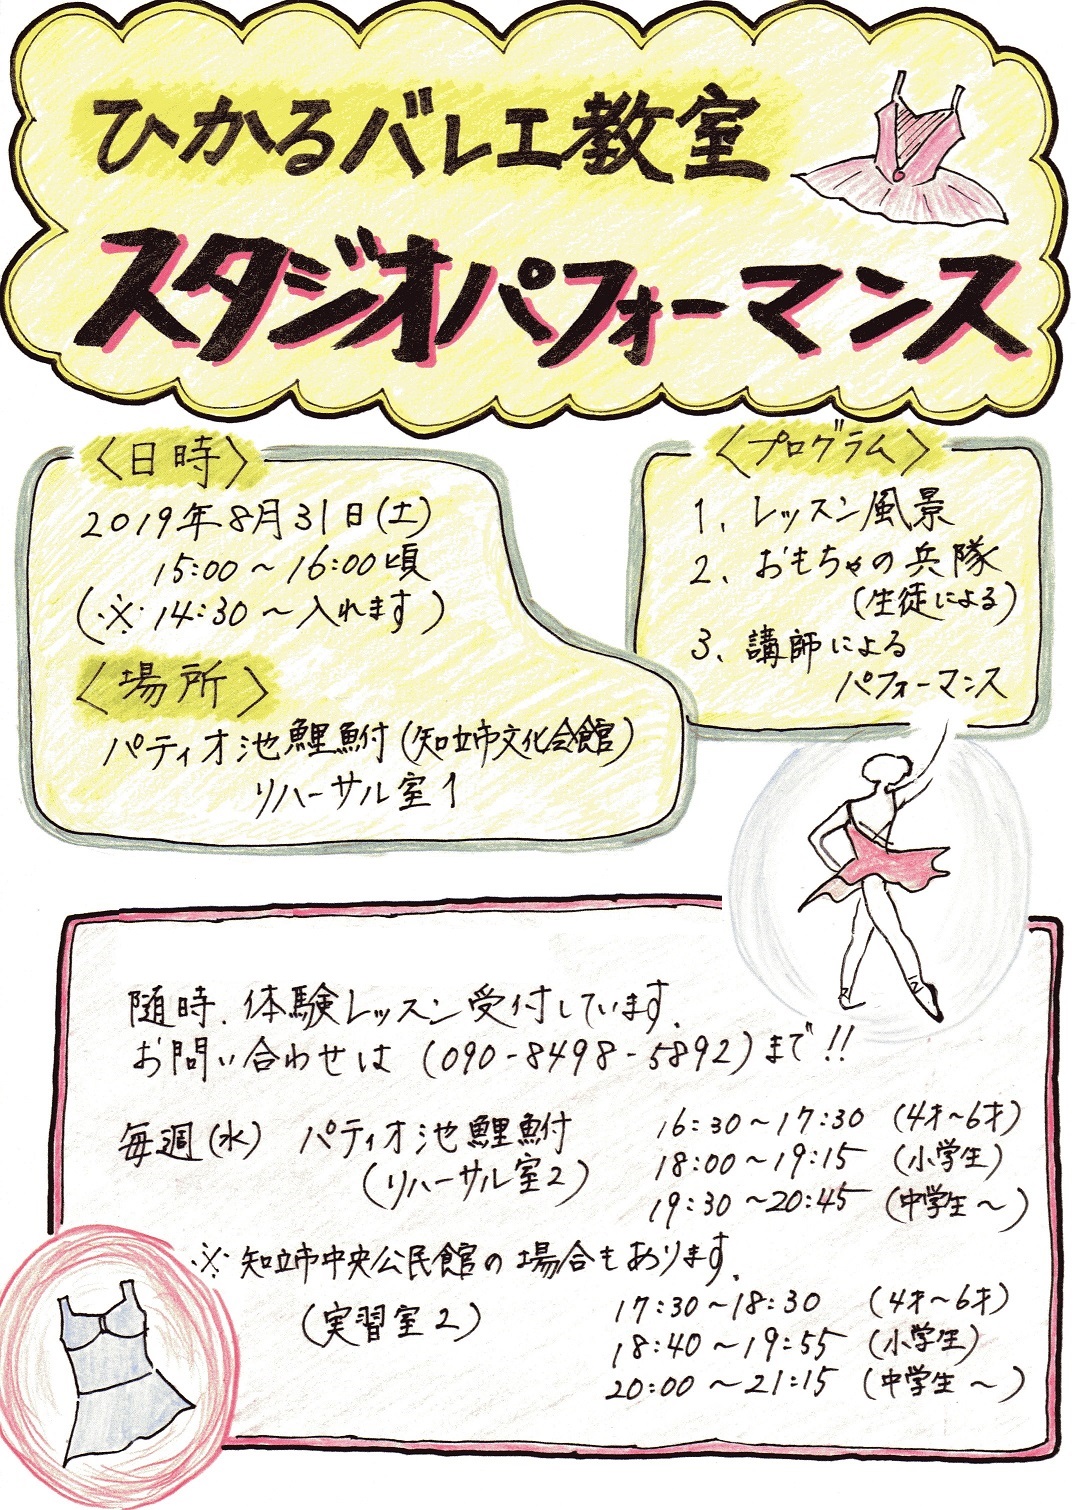 ひかるバレエ教室
スタジオパフォーマンス
〈日時〉
2019年8月31日(土)
15:00〜16:00頃
(※14:30〜入れます)
〈場所〉
パティオ池鯉鮒(知立市文化会館)
リハーサル室1
〈プログラム〉
1、レッスン風景
2、おもちゃの兵隊
(生徒による)
3、講師による
パフォーマンス
随時、体験レッスン受付しています。
お問い合わせは (090-8498-5892)まで!!
毎週(水) パティオ池鯉鮒 16:30〜17:30 (4才〜6才)
(リハーサル室2) 18:00〜19:15 (小学生)
19:30〜20:45 (中学生〜)
※知立市中央公民館の場合もあります。
(実習室2) 17:30〜18:30 (4才〜6才)
18:40〜19:55 (小学生)
20:00〜21:15 (中学生〜)